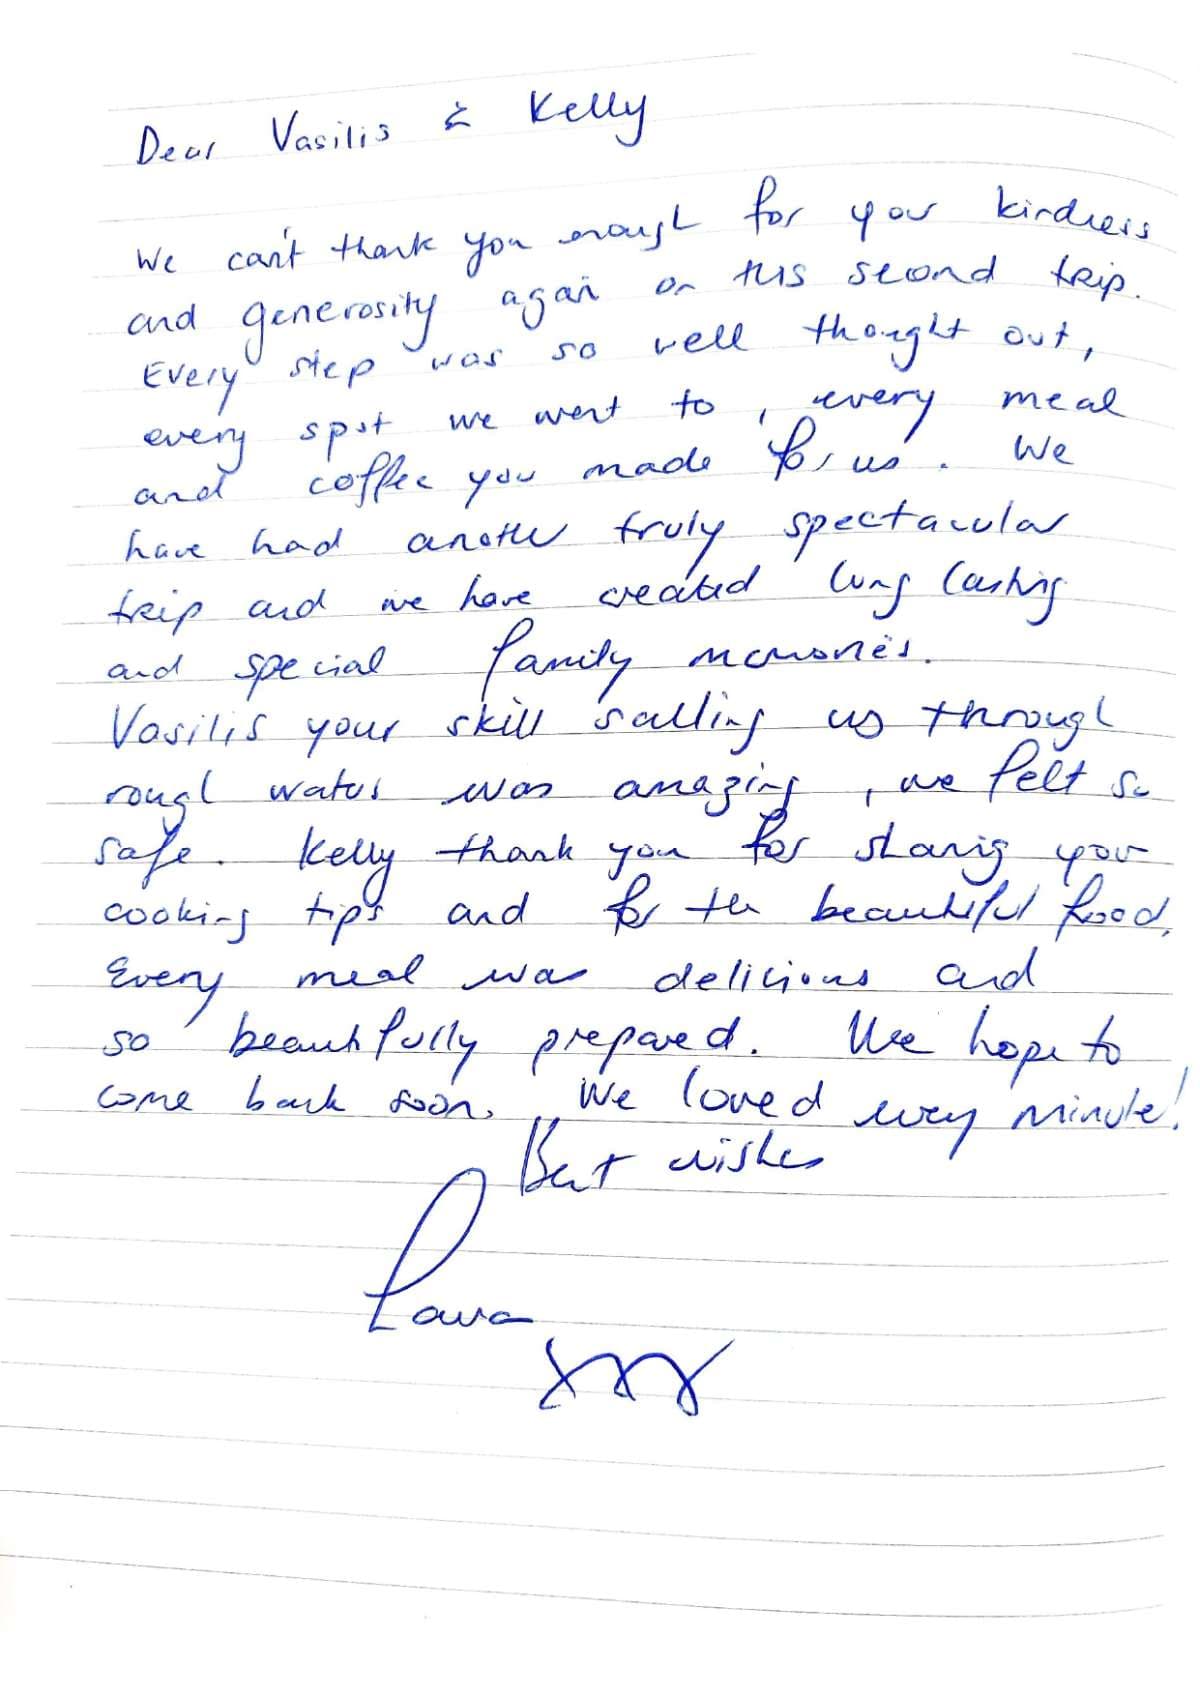 Dear Vasilis & Kelly
We can't thank you enough for your kindness
and generosity again on this second trip.
Every step was so well thought out,
every spot we went to, every meal
and coffee you made for us. We
have had another truly spectacular
trip and we have created long lasting
and special family memories.
Vasilis your skill sailing us through
rough waters was amazing, we felt so
safe. Kelly thank you for sharing your
cooking tips and for the beautiful food.
Every meal was delicious and
so beautifully prepared. We hope to
come back soon. We loved every minute!
Best wishes
Laura
xxx